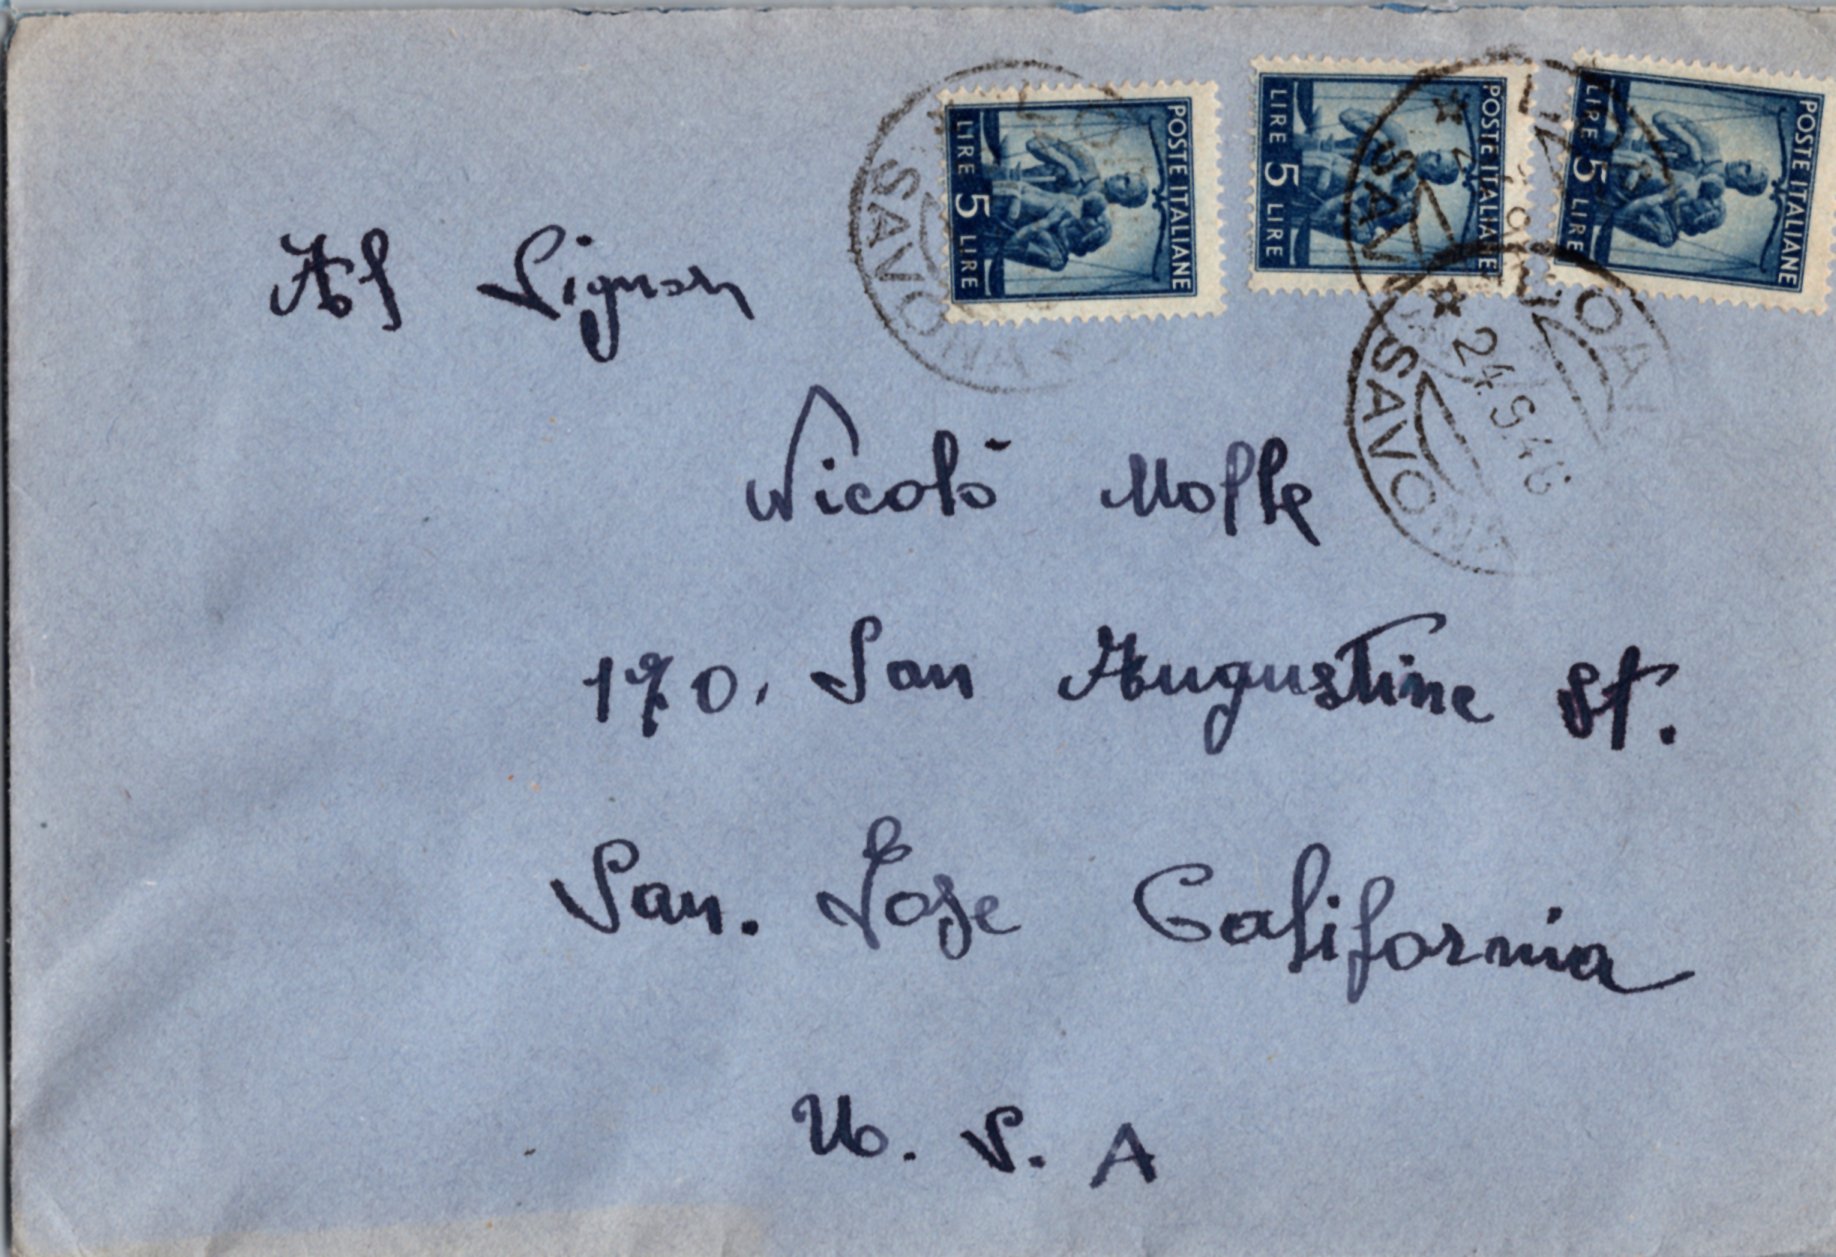 POSTE ITALIANE
LIRE 5 LIRE
POSTE ITALIANE
LIRE 5 LIRE
POSTE ITALIANE
LIRE 5 LIRE
SAVONA
SAVONA
24.9.46
SAVONA
Al Signor
Nicolò Molle
170. San Augustine St.
San. Jose California
U. S. A